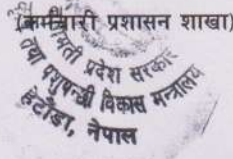 (कर्मचारी प्रशासन शाखा)
प्रदेश सरकार
तथा पशुपन्छी विकास मन्त्रालय
हेटौंडा, नेपाल